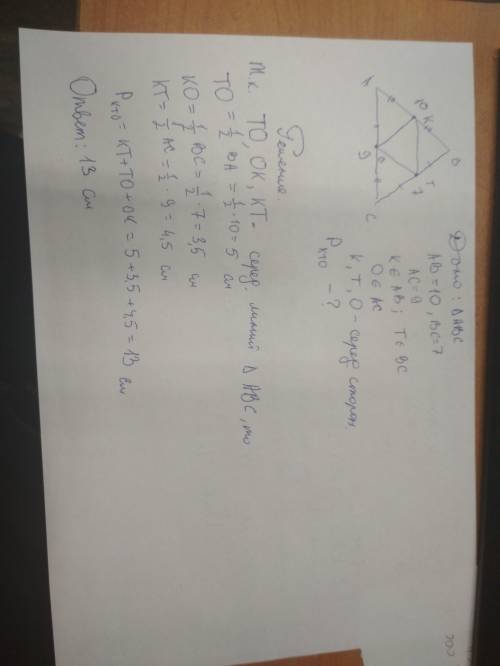 Дано: Δ ABC
AB=10, BC=7
AC=9
K ∈ AB; T ∈ BC
O ∈ AC
K, T, O - серед сторон
P KTO - ?
A
10
K
B
T
7
O
9
C
Решение.
Т.к. TO, OK, KT - серед линий Δ ABC, то
TO = 1/2 BA = 1/2 · 10 = 5 см
KO = 1/2 BC = 1/2 · 7 = 3,5 см
KT = 1/2 AC = 1/2 · 9 = 4,5 см
P KTO = KT + TO + OK = 5 + 3,5 + 4,5 = 13 см
Ответ: 13 см